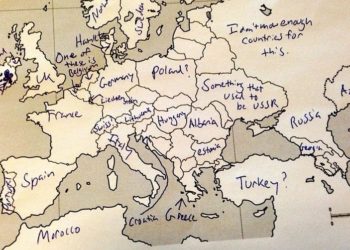 Norway
Sweden
I don't know enough
countries for
this.
UK
One of
these is
Belgium
Germany
Poland?
Something that
used to
be USSR
France
Hungary
Albania
Russia
Georgia
Estonia
Italy
Spain
Croatia
Greece
Turkey?
Morocco